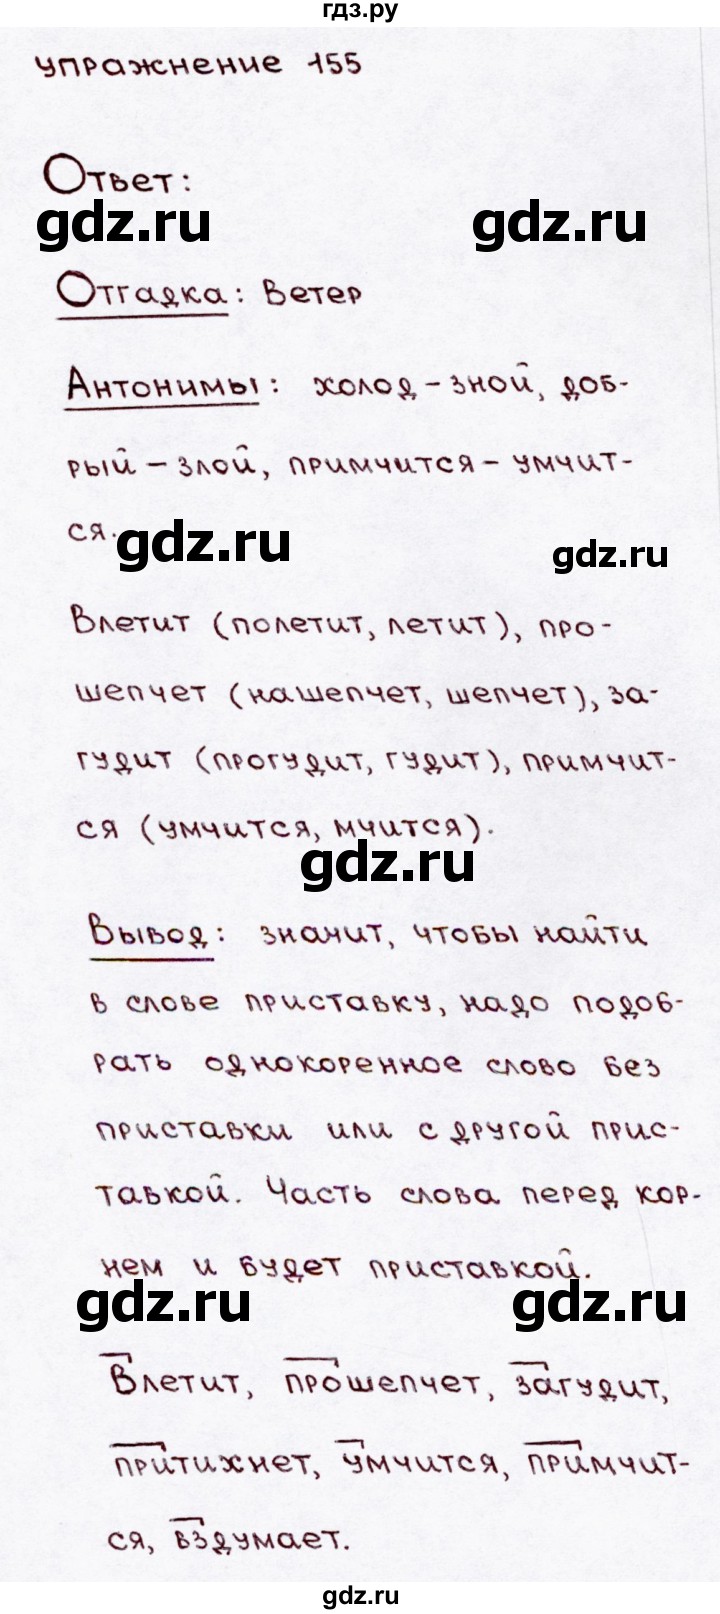 гдз.ру
упражнение 155
Ответ:
gdz.ru gdz.ru
Отгадка: Ветер
Антонимы: холод - зной, доб-
рый - злой, примчится - умчит-
ся.
gdz.ru gdz.ru
Влетит (полетит, летит), про-
шепчет (нашепчет, шепчет), за-
гудит (прогудит, гудит), примчит-
ся (умчится, мчится).
gdz.ru
Вывод: значит, чтобы найти
в слове приставку, надо подоб-
рать однокоренное слово без
приставки или с другой прис-
тавкой. Часть слова перед кор-
нем и будет приставкой.
gdz.ru gdz.ru
Влетит, прошепчет, загудит,
притихнет, умчится, примчит-
ся, вздумает.
gdz.ru